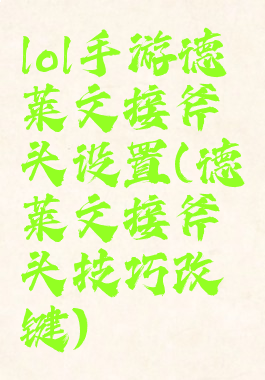 lol手游德
莱文接斧
头设置(德
莱文接斧
头技巧改
键)